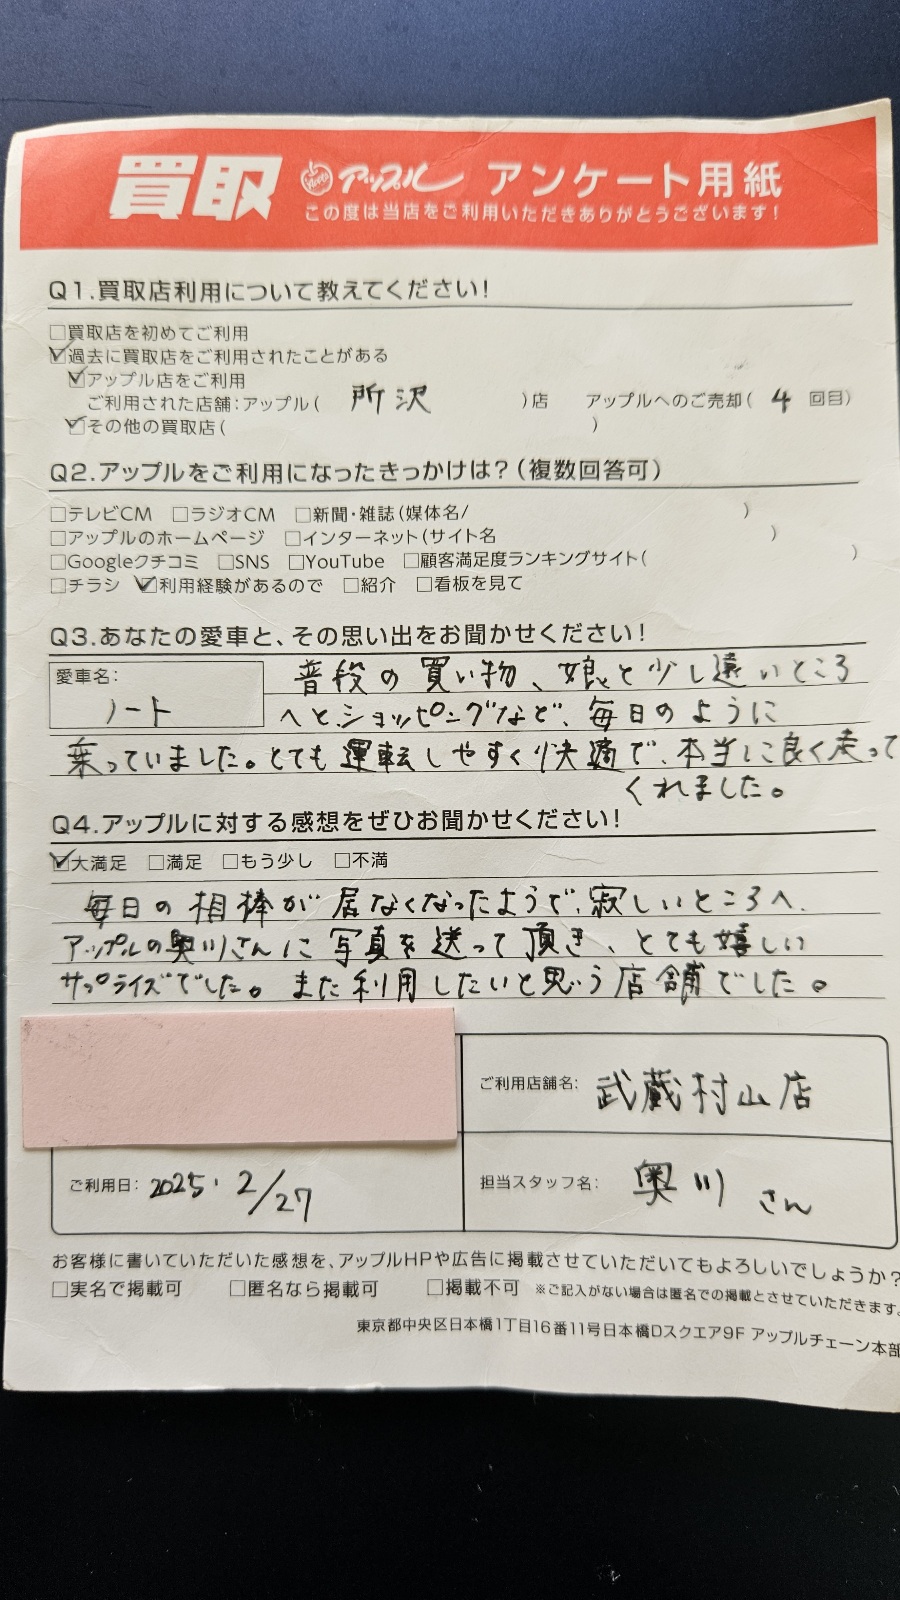 買取 Apple アップル アンケート用紙
この度は当店をご利用いただきありがとうございます!
Q1.買取店利用について教えてください!
□買取店を初めてご利用
☑過去に買取店をご利用されたことがある
☑アップル店をご利用
ご利用された店舗:アップル( 所沢 )店 アップルへのご売却( 4 回目)
☑その他の買取店( )
Q2.アップルをご利用になったきっかけは?(複数回答可)
□テレビCM □ラジオCM □新聞・雑誌(媒体名/ )
□アップルのホームページ □インターネット(サイト名 )
□Googleクチコミ □SNS □YouTube □顧客満足度ランキングサイト( )
□チラシ ☑利用経験があるので □紹介 □看板を見て
Q3.あなたの愛車と、その思い出をお聞かせください!
愛車名:
ノート
普段の買い物、娘と少し遠いところ
へとショッピングなど、毎日のように
乗っていました。とても運転しやすく快適で、本当に良く走って
くれました。
Q4.アップルに対する感想をぜひお聞かせください!
☑大満足 □満足 □もう少し □不満
毎日の相棒が居なくなったようで、寂しいところへ、
アップルの奥川さんに写真を送って頂き、とても嬉しい
サプライズでした。また利用したいと思う店舗でした。
ご利用店舗名: 武蔵村山店
ご利用日: 2025. 2/27
担当スタッフ名: 奥川 さん
お客様に書いていただいた感想を、アップルHPや広告に掲載させていただいてもよろしいでしょうか?
□実名で掲載可 □匿名なら掲載可 □掲載不可 ※ご記入がない場合は匿名での掲載とさせていただきます。
東京都中央区日本橋1丁目16番11号日本橋Dスクエア9F アップルチェーン本部